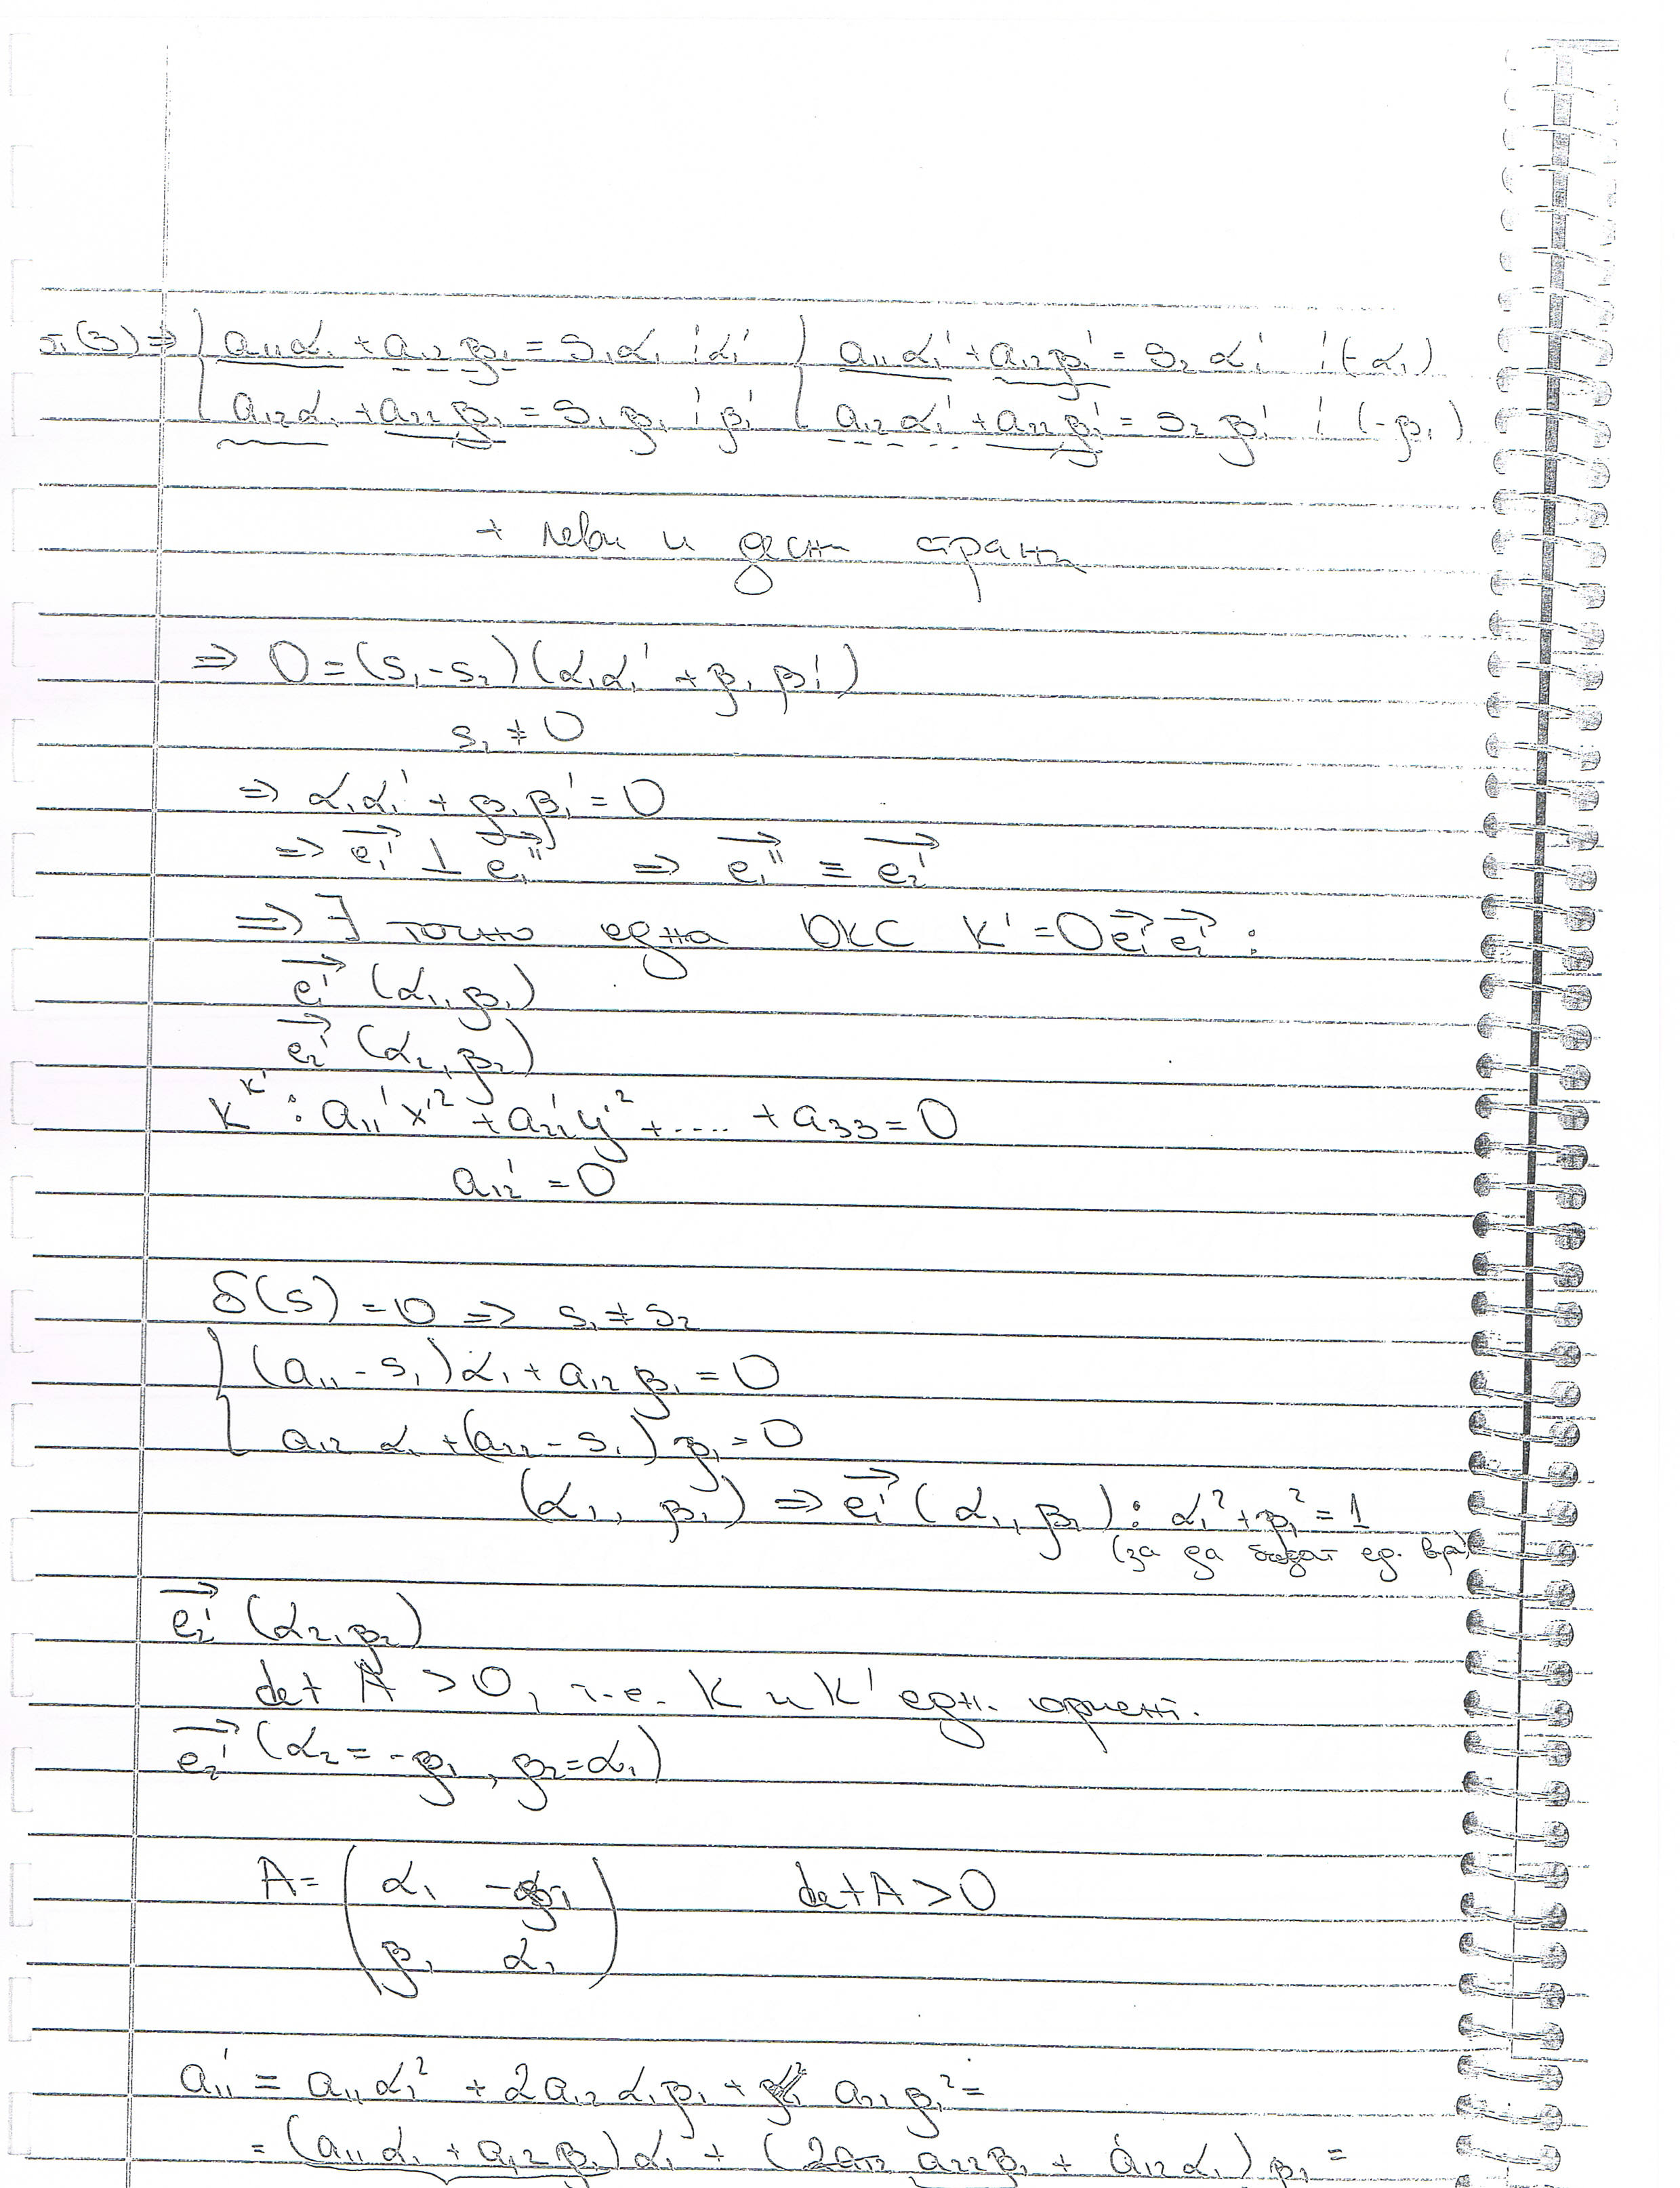 (3) ⇒ { a₁₁α₁ + a₁₂β₁ = s₁α₁ / α₁' { a₁₁α₁' + a₁₂β₁' = s₂α₁' / (-α₁)
{ a₁₂α₁ + a₂₂β₁ = s₁β₁ / β₁' { a₁₂α₁' + a₂₂β₁' = s₂β₁' / (-β₁)
+ леви и десни страни
⇒ 0 = (s₁ - s₂)(α₁α₁' + β₁β₁')
s₁ ≠ 0
⇒ α₁α₁' + β₁β₁' = 0
⇒ e₁'→ ⊥ e₁''→ ⇒ e₁''→ ≡ e₂'→
⇒ ∃ точно една ОКС K' = Oe₁'→e₂'→ :
e₁'→ (α₁, β₁)
e₂'→ (α₂, β₂)
K^K' : a₁₁'x'² + a₂₂'y'² + .... + a₃₃ = 0
a₁₂' = 0
δ(s) = 0 ⇒ s₁ ≠ s₂
{ (a₁₁ - s₁)α₁ + a₁₂β₁ = 0
{ a₁₂α₁ + (a₂₂ - s₁)β₁ = 0
(α₁, β₁) ⇒ e₁'→ (α₁, β₁) : α₁² + β₁² = 1
(за да бъдат ед. в-ри)
e₂'→ (α₂, β₂)
det A > 0, т.е. K и K' едн. ориент.
e₂'→ (α₂ = -β₁, β₂ = α₁)
A = ( α₁ -β₁ ) det A > 0
( β₁ α₁ )
a₁₁' = a₁₁α₁² + 2a₁₂α₁β₁ + a₂₂β₁² =
= (a₁₁α₁ + a₁₂β₁)α₁ + (a₂₂β₁ + a₁₂α₁)β₁ =